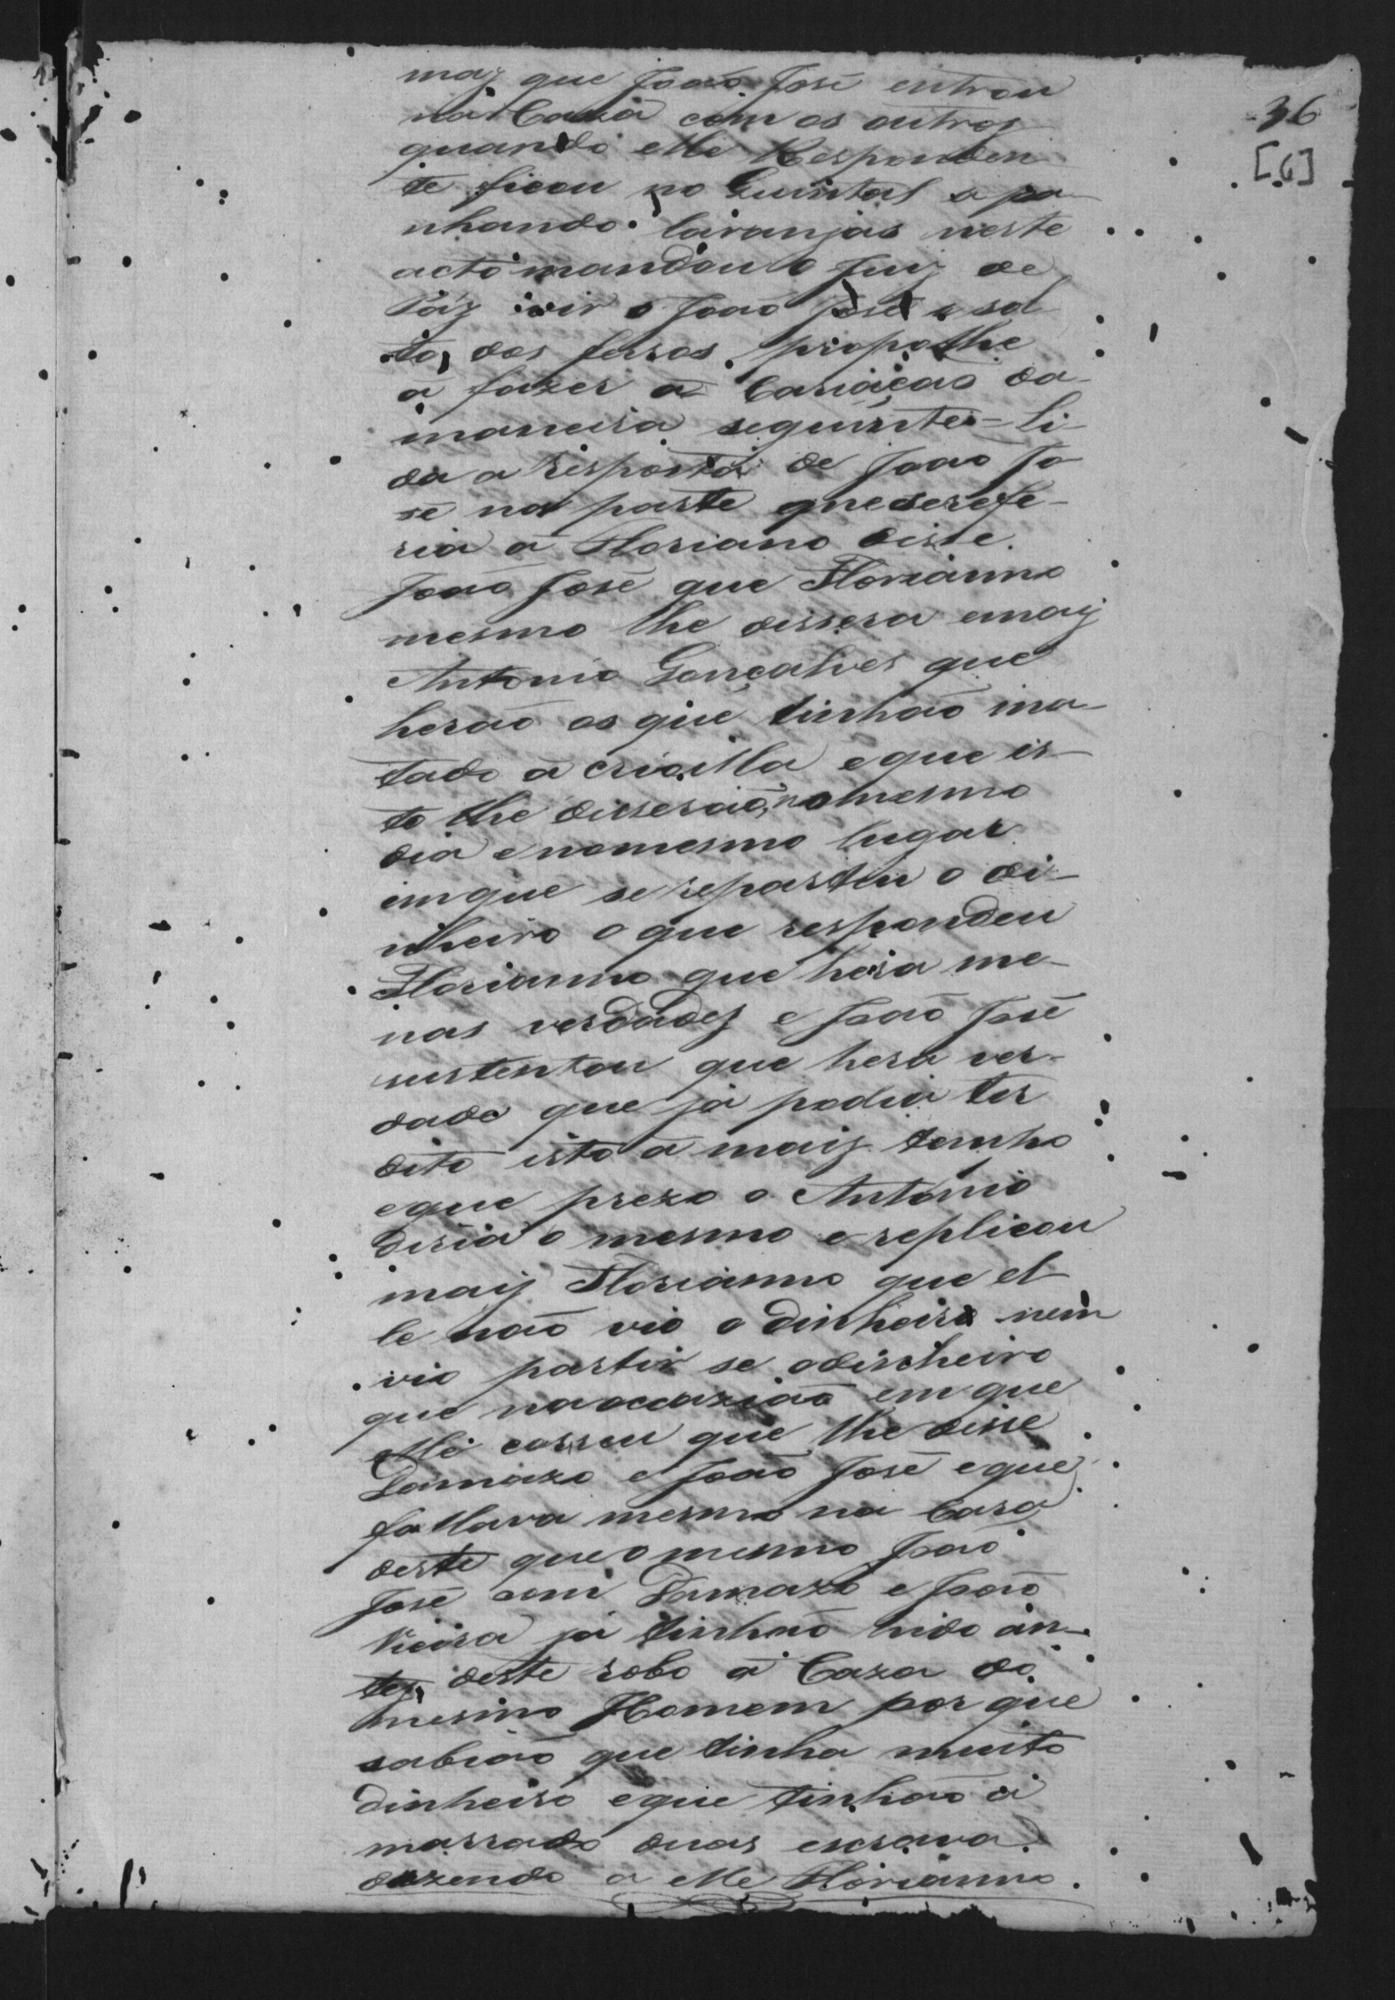 36
[6]
maz que João José entrou
na Caza com os outros
quando elle Responden
te ficou no Quintal apa
nhando laranjas neste
acto mandou o Juiz de
Páz vir o João José e sol
to, dos ferros, propos lhe
a fazer a Cariação da
maneira seguinte = Li
da a resposta de João Jo
sé na parte que se refe-
ria a Floriano disse
João José que Florianno
mesmo lhe dissera e maiz
Antonio Gonçalves que
herão os que tinhão ma-
tado a crioilla e que is-
to lhe diserão, no mesmo
dia e no mesmo lugar
em que se repartiu o di-
nheiro o que respondeu
Florianno que hera me-
nas verdadez e João José
sustentou que hera ver-
dade que já podia ter
dito isto a maiz tempo
e que prezo o Antonio
diria o mesmo e replicou
maiz Florianno que el-
le não vio o dinheiro nem
vio partir se o dinheiro
que na occazião em que
elle correu que lhe disse
Damazo e João José e que
fallava mesmo na Cara
deste que o mesmo João
José com Damazo e João
Vieira já tinhão hido an-
tez, deste robo a Caza do
mesmo Homem por que
sabião que tinha muito
dinheiro e que tinhão a
marrado duas escrava
dizendo a elle Florianno.